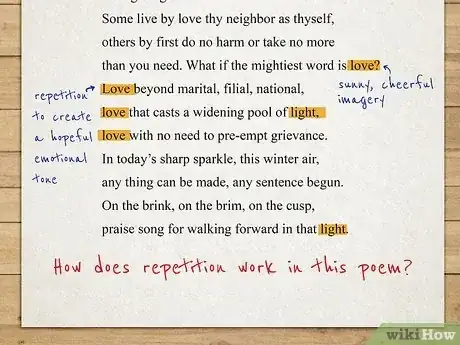 Some live by love thy neighbor as thyself,
others by first do no harm or take no more
than you need. What if the mightiest word is love?
Love beyond marital, filial, national,
love that casts a widening pool of light,
love with no need to pre-empt grievance.
In today's sharp sparkle, this winter air,
any thing can be made, any sentence begun.
On the brink, on the brim, on the cusp,
praise song for walking forward in that light.
repetition
to create
a hopeful
emotional
tone
sunny, cheerful
imagery
How does repetition work in this poem?
wikiHow